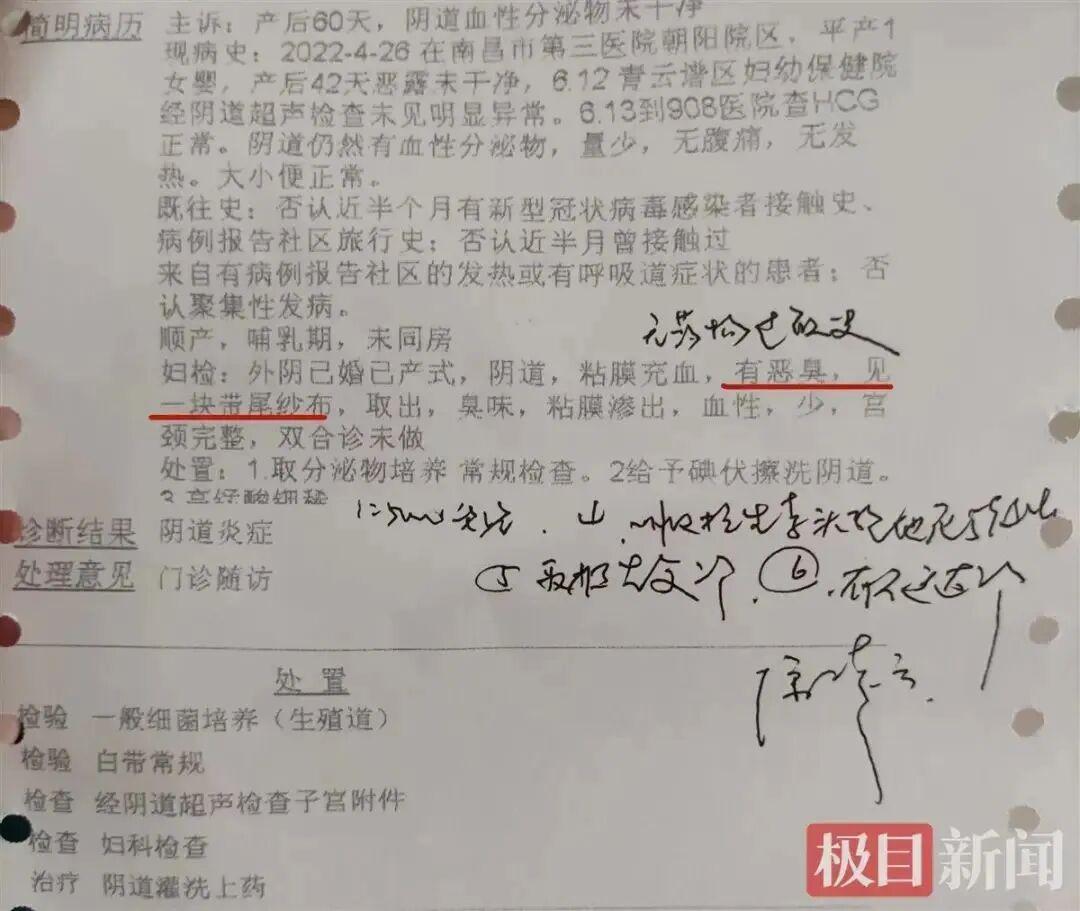 简明病历 主诉：产后60天，阴道血性分泌物未干净
现病史：2022-4-26 在南昌市第三医院朝阳院区，平产1
女婴，产后42天恶露未干净，6.12 青云谱区妇幼保健院
经阴道超声检查未见明显异常。6.13到908医院查HCG
正常。阴道仍然有血性分泌物，量少，无腹痛，无发
热。大小便正常。
既往史：否认近半个月有新型冠状病毒感染者接触史、
病例报告社区旅行史；否认近半月曾接触过
来自有病例报告社区的发热或有呼吸道症状的患者；否
认聚集性发病。
顺产，哺乳期，未同房
无药物过敏史
妇检：外阴已婚已产式，阴道，粘膜充血，有恶臭，见
一块带尾纱布，取出，臭味，粘膜渗出，血性，少，宫
颈完整，双合诊未做
处置：1.取分泌物培养 常规检查。2给予碘伏擦洗阴道。
诊断结果 阴道炎症
处理意见 门诊随访
⑤
⑥
处 置
检验 一般细菌培养（生殖道）
检验 白带常规
检查 经阴道超声检查子宫附件
检查 妇科检查
治疗 阴道灌洗上药
极目新闻